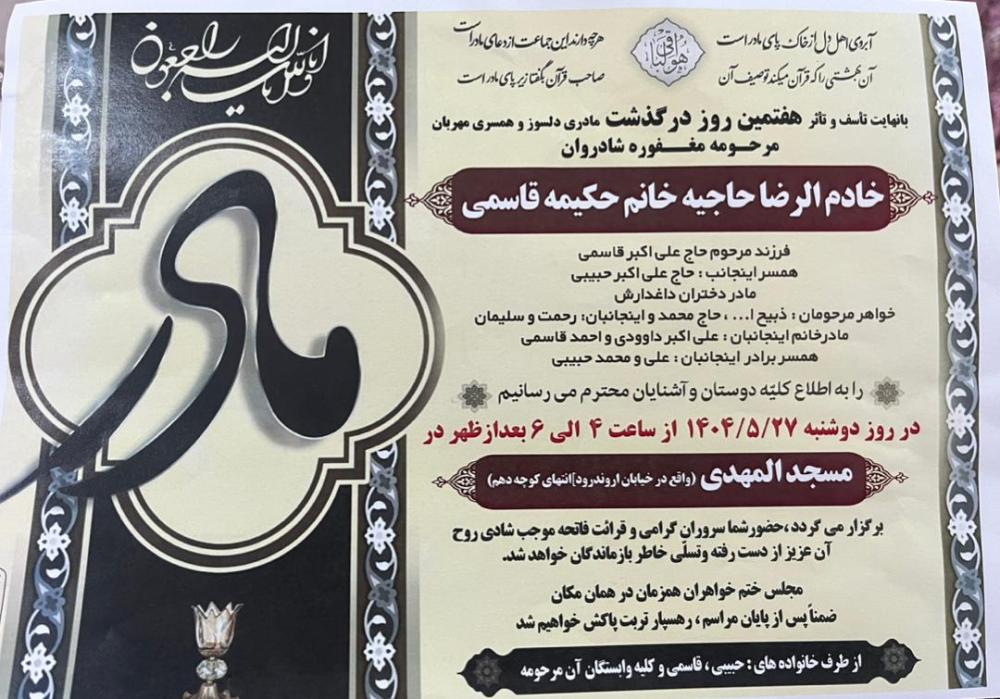 انا لله و انا الیه راجعون
هو الباقی
آبروی اهل دل از خاک پای مادر است
هرچه دارند این جماعت از دعای مادر است
آن بهشتی را که قرآن میکند توصیف آن
صاحب قرآن بگفتا زیر پای مادر است
بانهایت تأسف و تأثر هفتمین روز درگذشت مادری دلسوز و همسری مهربان
مرحومه مغفوره شادروان
خادم الرضا حاجیه خانم حکیمه قاسمی
فرزند مرحوم حاج علی اکبر قاسمی
همسر اینجانب : حاج علی اکبر حبیبی
مادر دختران داغدارش
خواهر مرحومان : ذبیح ا... ، حاج محمد و اینجانبان: رحمت و سلیمان
مادرخانم اینجانبان : علی اکبر داوودی و احمد قاسمی
همسر برادر اینجانبان : علی و محمد حبیبی
را به اطلاع کلیّه دوستان و آشنایان محترم می رسانیم
در روز دوشنبه ۱۴۰۴/۵/۲۷ از ساعت ۴ الی ۶ بعدازظهر در
مسجد المهدی (واقع در خیابان اروندرود]انتهای کوچه دهم)
برگزار می گردد ،حضورشما سروران گرامی و قرائت فاتحه موجب شادی روح
آن عزیز از دست رفته وتسلّی خاطر بازماندگان خواهد شد.
مجلس ختم خواهران همزمان در همان مکان
ضمناً پس از پایان مراسم ، رهسپار تربت پاکش خواهیم شد
از طرف خانواده های : حبیبی ، قاسمی و کلیه وابستگان آن مرحومه
مادر